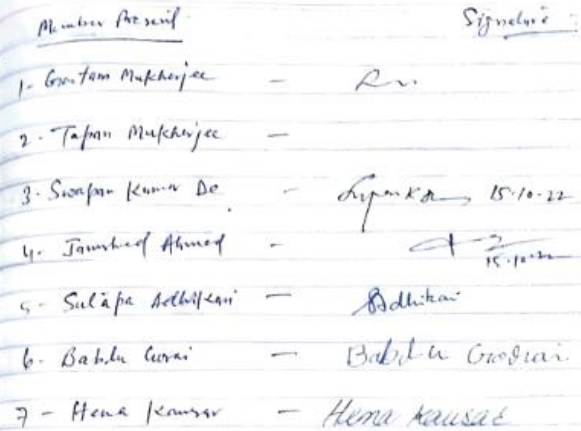 Member Present Signature
1- Goutam Mukherjee -
2- Tapan Mukherjee -
3- Swapan Kumar De - 15-10-22
4- Jamshed Ahmed - 15-10-22
5- Sulapa Adhikari - Adhikari
6- Bablu Gorai - Bablu Gorai
7- Hena Kausar - Hena Kausar